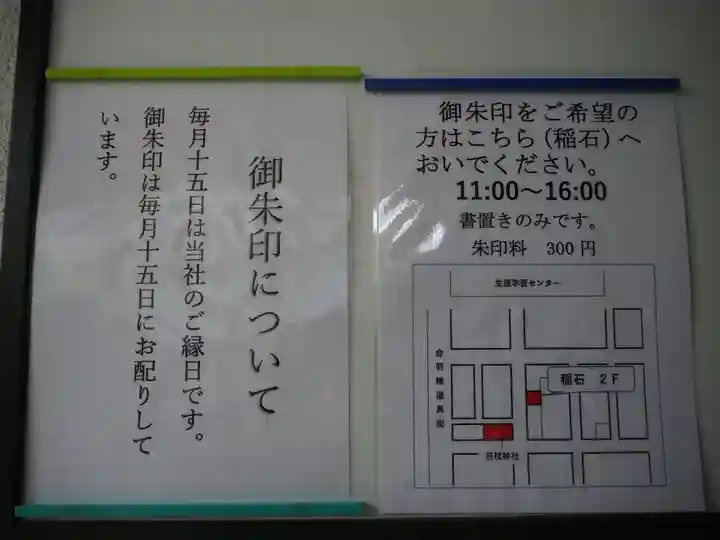 御朱印について
毎月十五日は当社のご縁日です。
御朱印は毎月十五日にお配りして
います。
御朱印をご希望の
方はこちら（稲石）へ
おいでください。
11:00～16:00
書置きのみです。
朱印料　300円
生涯学習センター
合羽橋道具街
稲石　2F
日枝神社